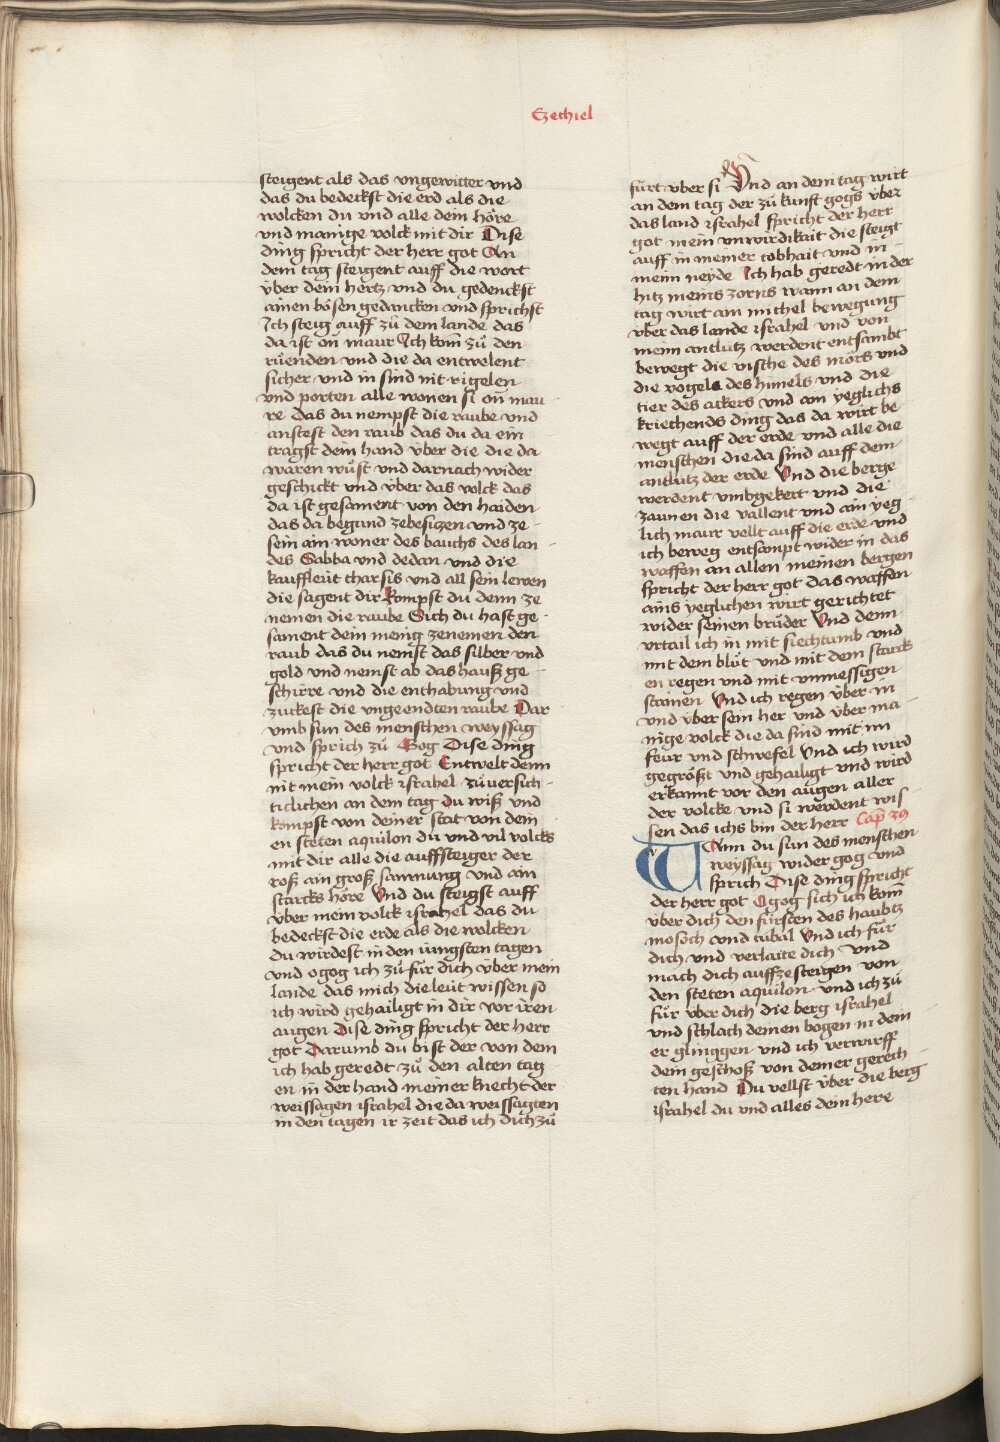 Ezechiel
steigent als das vngewitter vnd
das du bedeckst die erd als die
wolcken du vnd alle dein höre
vnd manige volck mit dir Dise
ding spricht der herr got An
dem tag steigent auff die wort
vber dein hertz vnd du gedenckst
ainen bösen gedancken vnd sprichst
Ich steig auff zů dem lande das
da ist on maur Ich kom zů den
růenden vnd die da entwelent
sicher vnd in sind nit rigelen
vnd porten alle wonen si on mau
re das du nempst die raube vnd
anstest den raub das du da ein
tragst dein hand über die die da
waren wůst vnd darnach wider
geschickt vnd vber das volck das
da ist gesament von den haiden
das da begund zebesiczen vnd ze
sein ain woner des bauchs des lan
des Sabba vnd dedan vnd die
kauffleüt tharsis vnd all sein lewen
die sagent dir kompst du denn ze
nemen die raube Sich du hast ge
sament dein menig zenemen den
raub das du nemst das silber vnd
gold vnd nemst ab das hauß ge
schirre vnd die enthabung vnd
zuckest die vngeendten raube Dar
vmb sun des menschen weyssag
vnd sprich zů Gog Dise ding
spricht der herr got Entwelt denn
nit mein volck israhel zůuersich
ticlichen an dem tag du wiß vnd
kompst von deiner stat von dem
en steten aquilon du vnd vil volcks
mit dir alle die auffsteiger der
roß ain groß samnung vnd ain
starcks höre Vnd du steigst auff
vber mein volck israhel das du
bedeckst die erde als die wolcken
du wirdest in den iungsten tagen
vnd ogog ich zů für dich über mein
lande das mich die leüt wissen so
ich wird gehailigt in dir vor iren
augen Dise ding spricht der herr
got Darumb du bist der von dem
ich hab geredt zů den alten tag
en in der hand meiner knecht der
weissagen israhel die da weissagten
in den tagen ir zeit das ich dich zů
fürt vber si Vnd an dem tag wirt
an dem tag der zů kunst gogs vber
das land israhel spricht der herr
got mein vnwirdikait die steigt
auff in meiner tobhait vnd in
meim neyde Ich hab geredt in der
hitz meins zorns wann an dem
tag wirt am michel bewegung
vber das lande israhel vnd von
meim antlütz werdent entsambt
bewegt die vische des mörs vnd
die vogel des himels vnd die
tier des ackers vnd ain yeglichs
kriechends ding das da wirt be
wegt auff der erde vnd alle die
menschen die da sind auff dem
antlütz der erde Vnd die berge
werdent vmbgekert vnd die
zaunen die vallent vnd ain yeg
lich maur vellt auff die erde vnd
ich beweg entsampt wider in das
waffen an allen meinen bergen
spricht der herr got das waffen
ains yeglichen wirt gerichtet
wider seinen brůder Vnd denn
vrtail ich in mit siechtumb vnd
mit dem blůt vnd mit dem starck
en regen vnd mit vnmessigen
stainen Vnd ich regen über in
vnd vber sein her vnd über ma
nige volck die da sind mit im
feur vnd schwefel Vnd ich wird
gegrößt vnd gehailigt vnd wird
erkannt vor den augen aller
der volcke vnd si werdent wis
sen das ichs bin der herr Cap 39
WAnn du sun des menschen
weyssag wider gog vnd
sprich Dise ding spricht
der herr got Ogog sich ich kom
über dich den fürsten des haubtz
mosoch vnd tubal Vnd ich für
dich vnd verlaite dich vnd
mach dich auffzesteigen von
den steten aquilon vnd ich zů
für vber dich die berg israhel
vnd schlach deinen bogen in dem
er glinggen vnd ich verwirff
dein geschoß von deiner gerech
ten hand Du vellst über die berg
israhel du vnd alles dein here